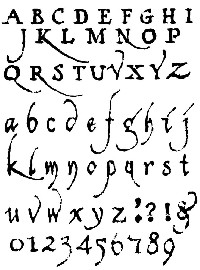 A B C D E F G H I
J K L M N O P
Q R S T U V X Y Z
a b c d e f g h i j
k l m n o p q r s t
u v w x y z : ? ! &
0 1 2 3 4 5 6 7 8 9